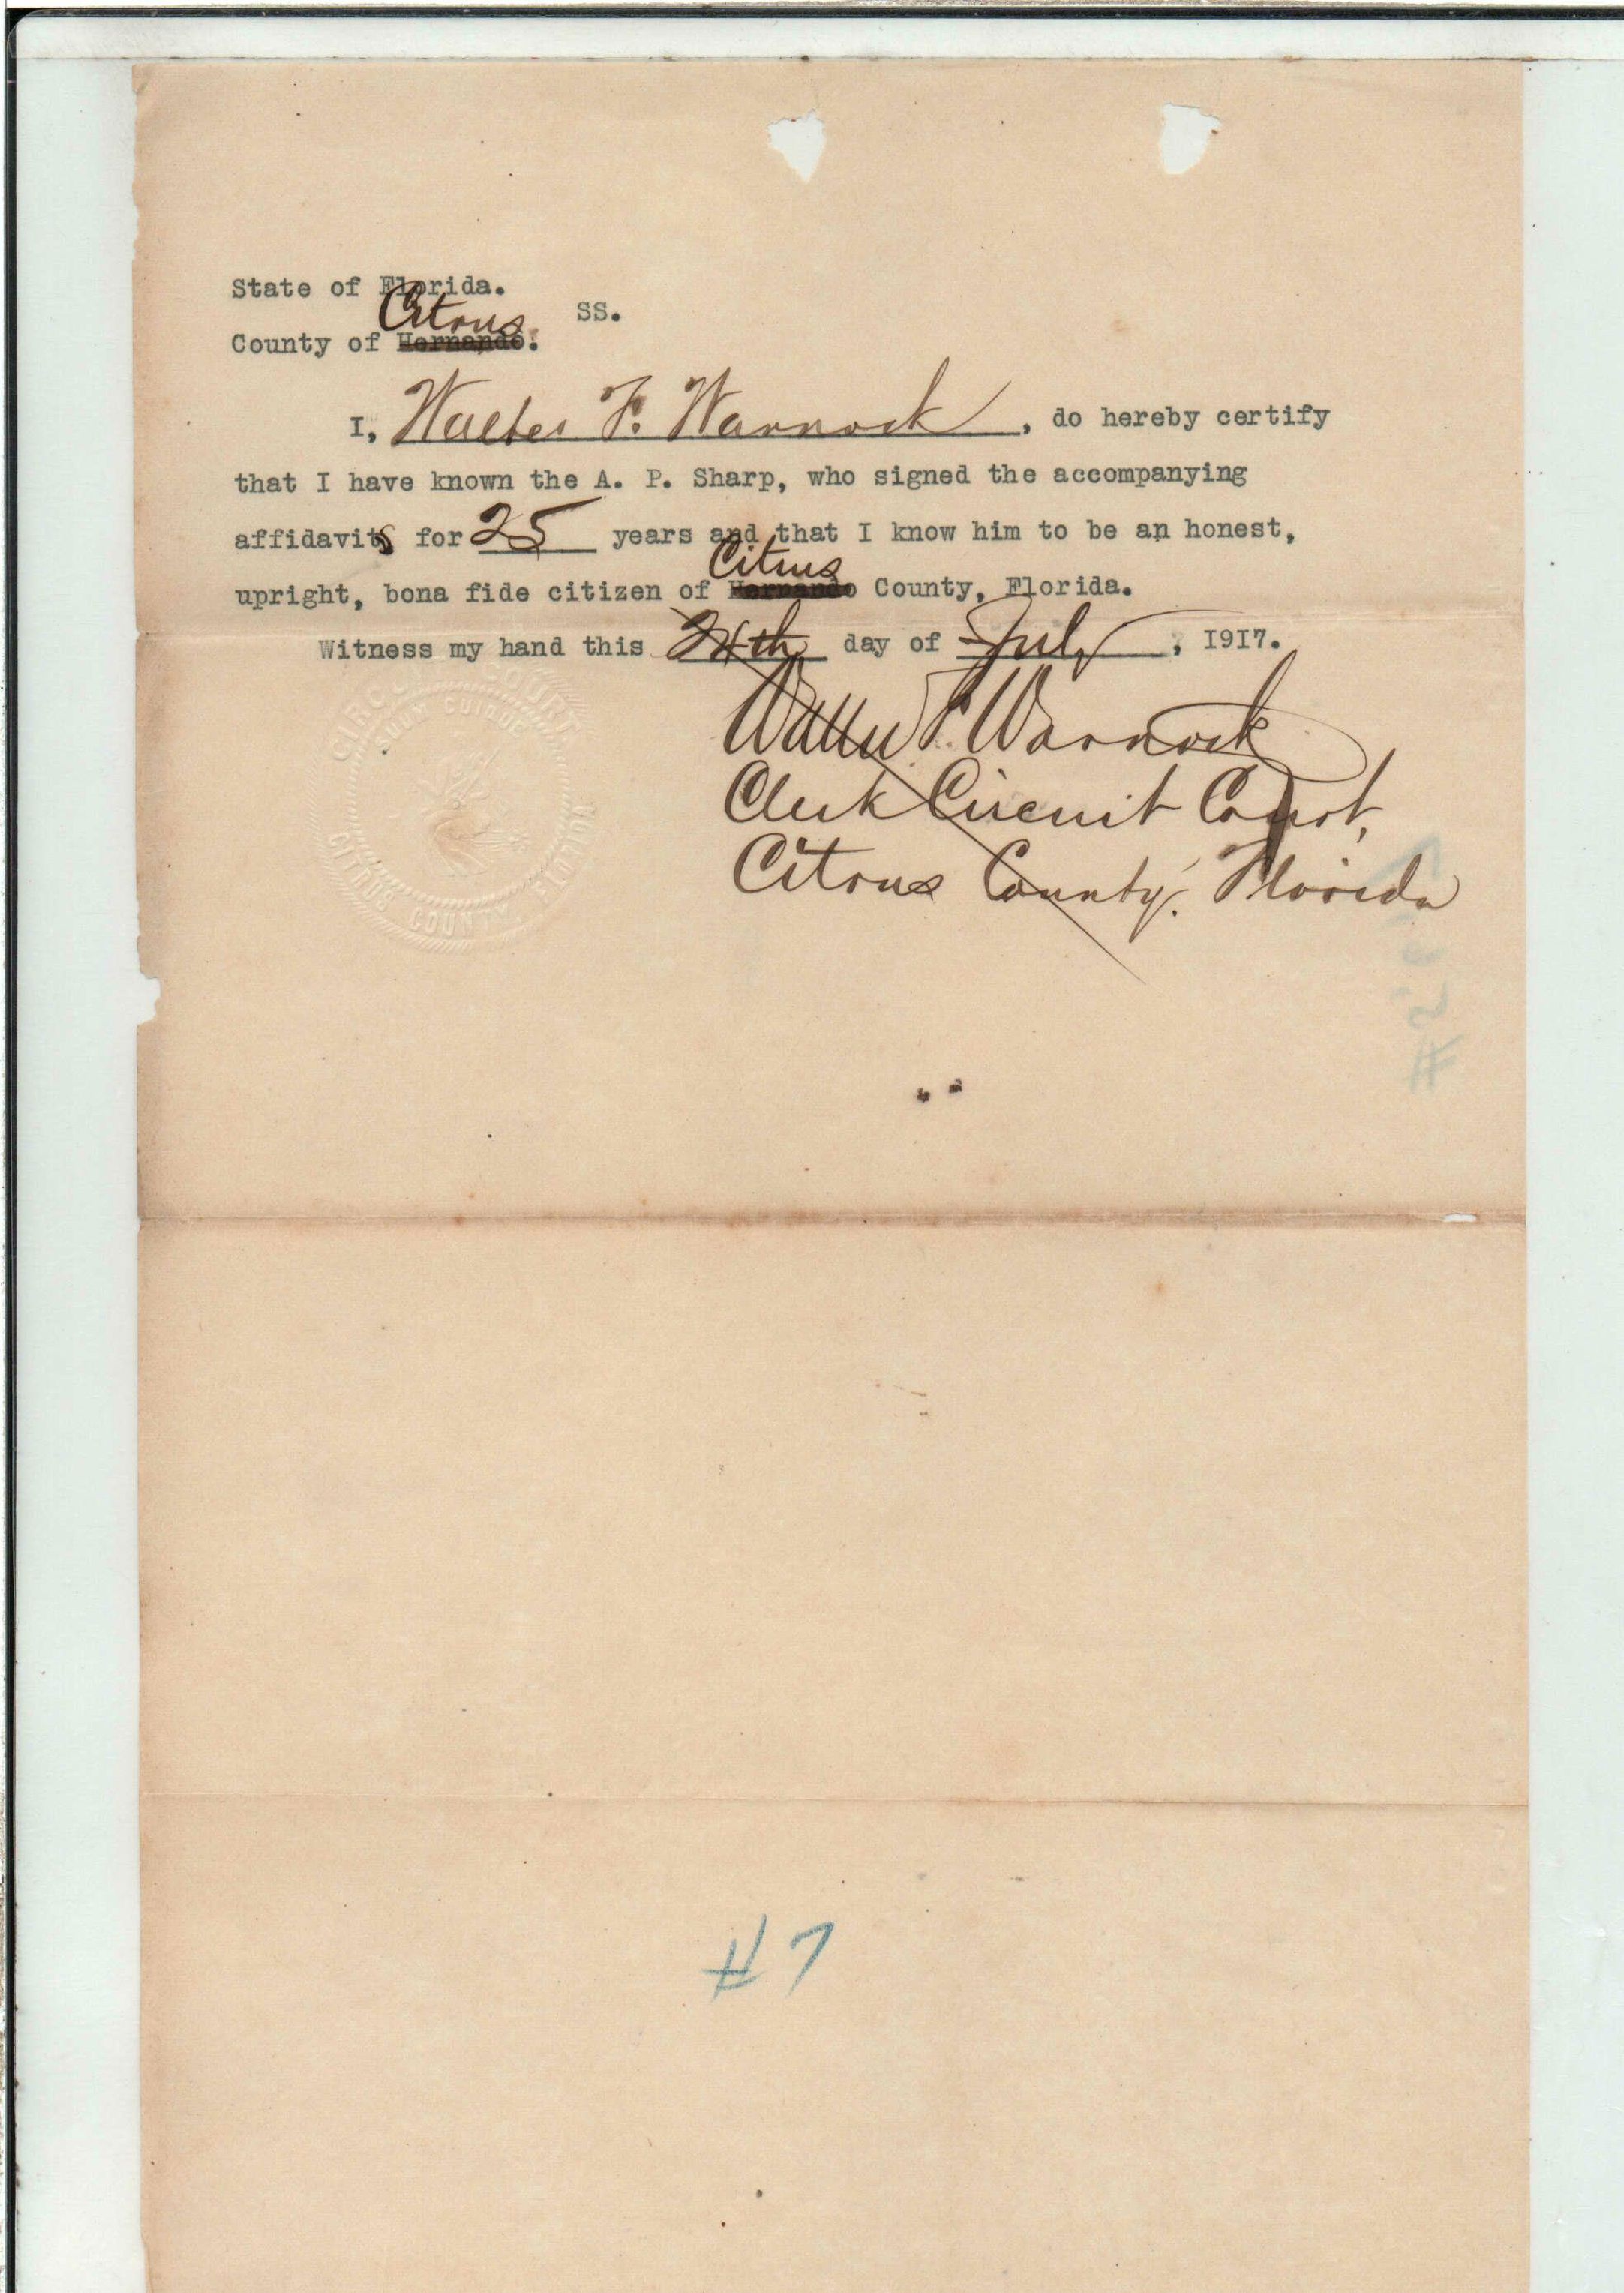 State of Florida.
SS.
Citrus
County of Hernando.
I, Walter F. Warnock, do hereby certify
that I have known the A. P. Sharp, who signed the accompanying
affidavits for 25 years and that I know him to be an honest,
Citrus
upright, bona fide citizen of Hernando County, Florida.
Witness my hand this 24th day of July, 1917.
Walter F. Warnock
Clerk Circuit Court,
Citrus County, Florida
CIRCUIT COURT
SUUM CUIQUE
CITRUS COUNTY, FLORIDA
#7